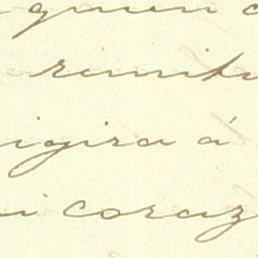 quien
remit
igira á
i coraz